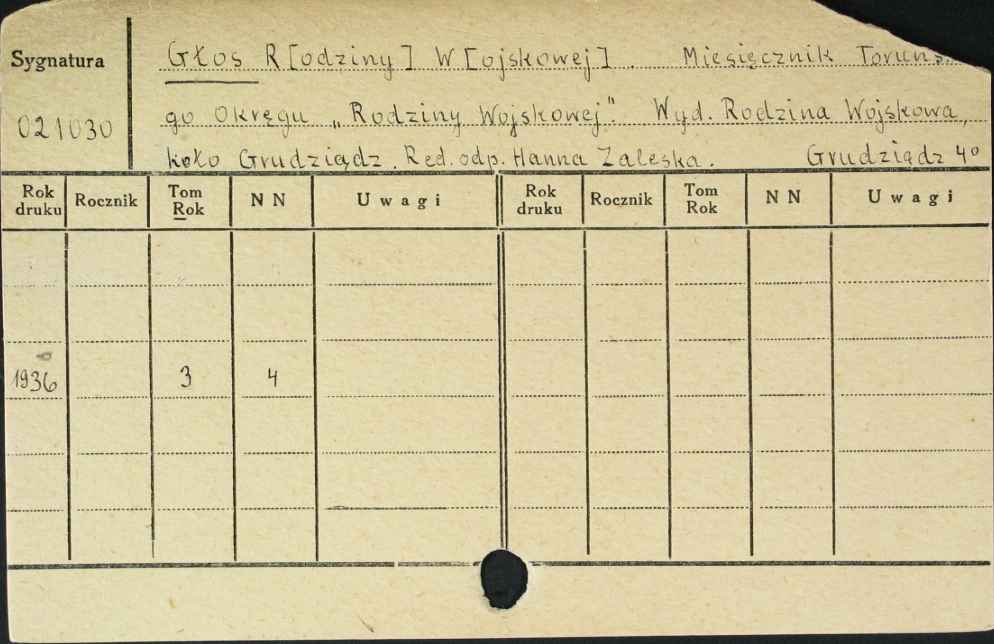 Sygnatura
021030
Głos R[odziny] W[ojskowej]. Miesięcznik Toruńs
go Okręgu „Rodziny Wojskowej". Wyd. Rodzina Wojskowa,
koło Grudziądz. Red. odp. Hanna Zaleska. Grudziądz 4°
Rok druku Rocznik Tom Rok NN Uwagi Rok druku Rocznik Tom Rok NN Uwagi
1936 3 4